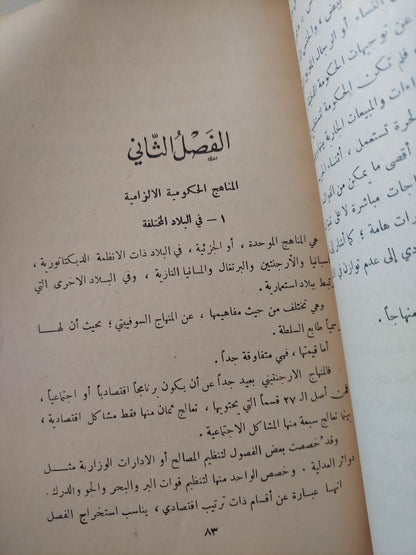 الفَصْلُ الثَّاني
المناهج الحكومية الالزامية
١ – في البلاد المختلفة
هي المناهج الموحدة ، أو الجزئية ، في البلاد ذات الانظمة الديكتاتورية ،
سبانيا والأرجنتين والبرتغال والمانيا النازية ، وفي البلاد الاخرى التي
تبط ببلاد استعمارية .
وهي تختلف من حيث مفاهيمها ، عن المنهاج السوفيتي ؛ بحيث أن لها
رسمياً طابع السلطة .
أما قيمتها ، فهي متفاوتة جداً .
فالمنهاج الارجنتيني بعيد جداً عن أن يكون برنامجاً اقتصادياً أو اجتماعياً ،
فمن أصل الـ ٢٧ قسماً التي يحتويها ، تعالج ثمان منها فقط مشاكل اقتصادية ،
بينما تعالج سبعة منها المشاكل الاجتماعية .
وقد خصصت بعض الفصول لتنظيم المصالح أو الادارات الوزارية مثل
دوائر العدلية . وخصص الواحد منها لتنظيم قوات البر والبحر والجو والدرك.
انها عبارة عن أقسام ذات ترتيب اقتصادي ، يناسب استخراج الفصل
٨٣
عن توجيهات الحكومة
فلم تكن الحكومة
اءات والمبيعات الجارية
لحرة تستعمل ، أثناء
أقصى ما يمكن من
اجات مباشرة لا على
رات هامة ؛ كما
دي إلى عدم توازن في
منهاجاً .